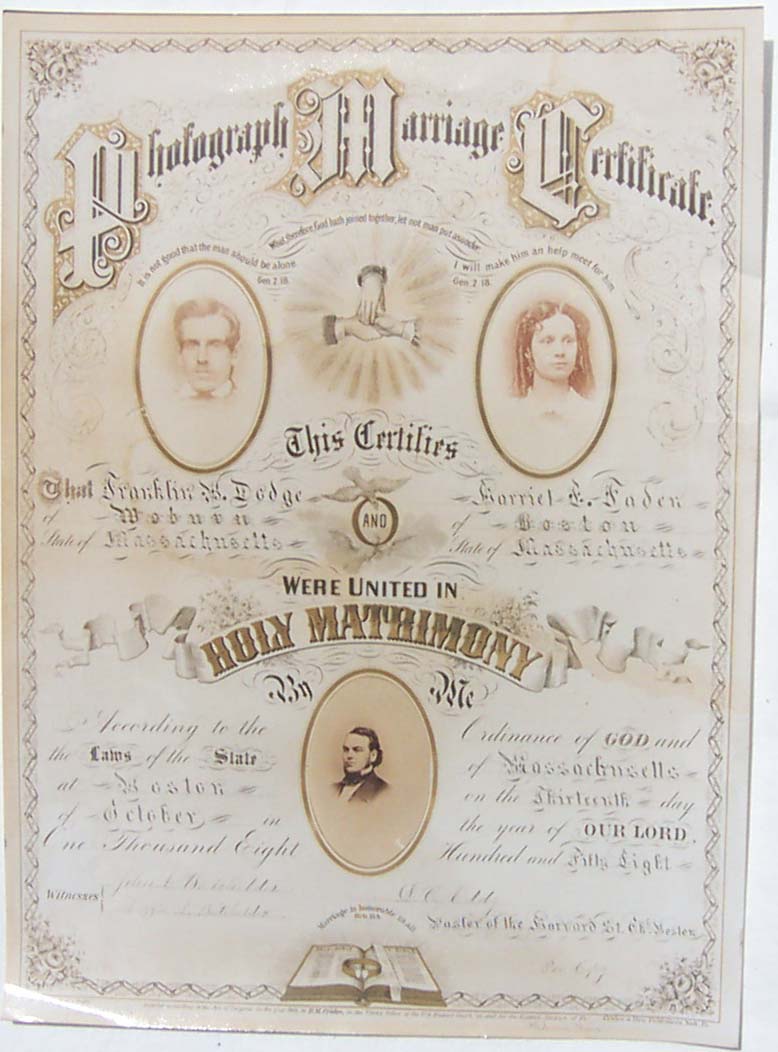 Photograph Marriage Certificate.
What therefore God hath joined together, let not man put asunder.
It is not good that the man should be alone.
Gen. 2. 18.
I will make him an help meet for him.
Gen. 2. 18.
This Certifies
That Franklin B. Dodge
of Woburn
State of Massachusetts
AND
Harriet E. Faden
of Boston
State of Massachusetts
WERE UNITED IN
HOLY MATRIMONY
By Me
According to the Ordinance of GOD and
the Laws of the State of Massachusetts
at Boston on the Thirteenth day
of October in the year of OUR LORD,
One Thousand Eight Hundred and Fifty Eight
WITNESSES
Marriage is honorable in all
Pastor of the Harvard St. Ch. Boston